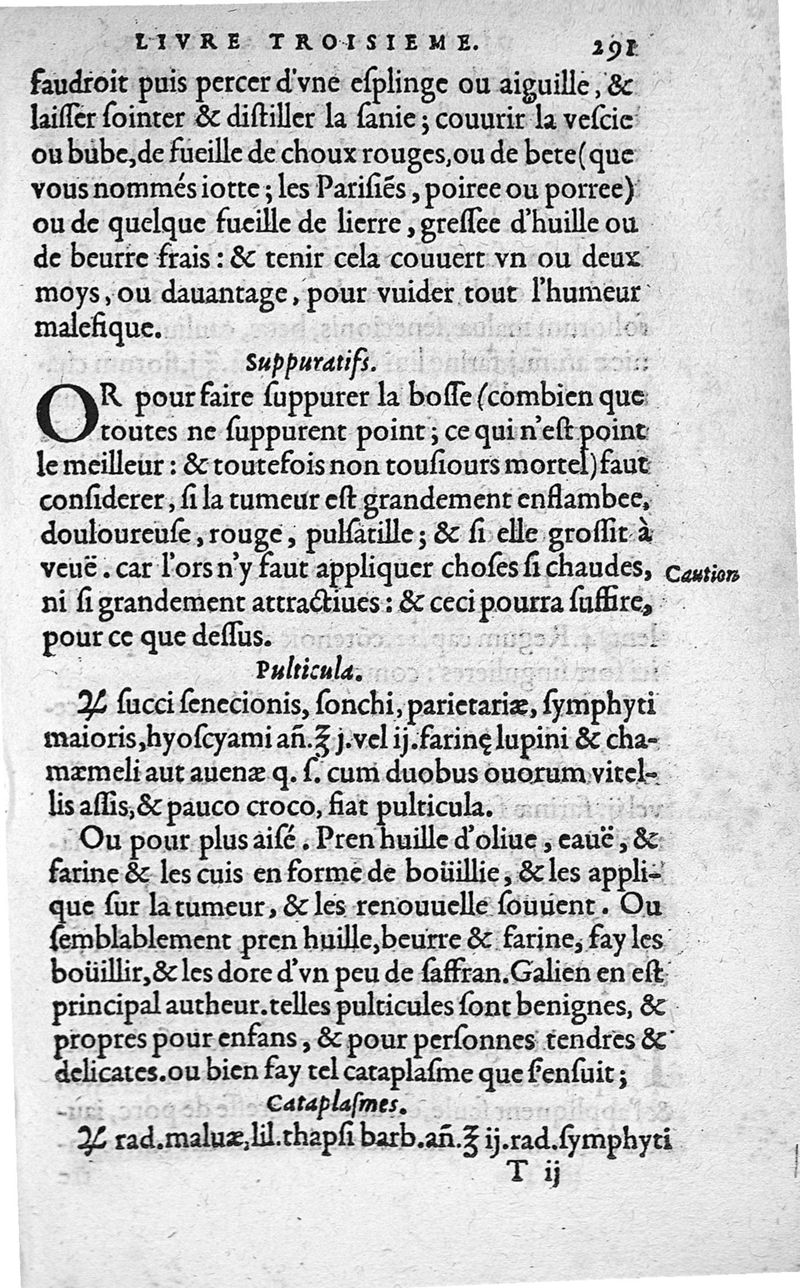 LIVRE TROISIEME. 291
faudroit puis percer d'vne eſplinge ou aiguille, &
laiſſer ſointer & diſtiller la ſanie; couurir la veſcie
ou bube, de fueille de choux rouges, ou de bete (que
vous nommés iotte; les Pariſiẽs, poiree ou porree)
ou de quelque fueille de lierre, greſſee d'huille ou
de beurre frais: & tenir cela couuert vn ou deux
moys, ou dauantage, pour vuider tout l'humeur
malefique.
Suppuratifs.
OR pour faire ſuppurer la boſſe (combien que
toutes ne ſuppurent point; ce qui n'eſt point
le meilleur: & toutefois non touſiours mortel) faut
conſiderer, ſi la tumeur eſt grandement enflambee,
douloureuſe, rouge, pulſatille; & ſi elle groſſit à
veuë. car l'ors n'y faut appliquer choſes ſi chaudes,
Caution
ni ſi grandement attractiues: & ceci pourra ſuffire,
pour ce que deſſus.
Pulticula.
℞ ſucci ſenecionis, ſonchi, parietariæ, ſymphyti
maioris, hyoſcyami añ. ℥ j. vel ij. farinę lupini & cha-
mæmeli aut auenæ q. ſ. cum duobus ouorum vitel-
lis aſſis, & pauco croco, fiat pulticula.
Ou pour plus aiſé. Pren huille d'oliue, eauë, &
farine & les cuis en forme de boüillie, & les appli-
que ſur la tumeur, & les renouuelle ſouuent. Ou
ſemblablement pren huille, beurre & farine, fay les
boüillir, & les dore d'vn peu de ſaffran. Galien en eſt
principal autheur. telles pulticules ſont benignes, &
propres pour enfans, & pour perſonnes tendres &
delicates. ou bien fay tel cataplaſme que ſ'enſuit;
Cataplaſmes.
℞ rad. maluæ, lil. thapſi barb. añ. ℥ ij. rad. ſymphyti
T ij